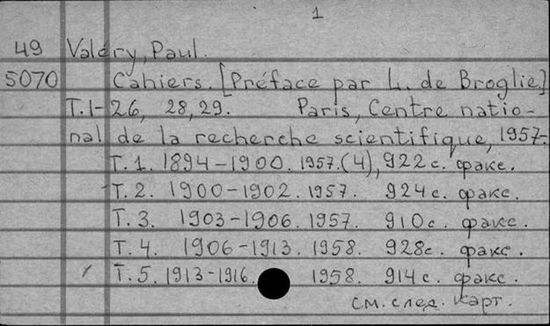 1
49 Valéry, Paul.
5070 Cahiers. [Préface par L. de Broglie]
T.1-26, 28, 29. Paris, Centre natio-
nal de la recherche scientifique, 1957-
T. 1. 1894-1900. 1957. (4), 922 с. факс.
T. 2. 1900-1902. 1957. 924 с. факс.
T. 3. 1903-1906. 1957. 910 с. факс.
T. 4. 1906-1913. 1958. 928 с. факс.
T. 5. 1913-1916. 1958. 914 с. факс.
см. след. карт.